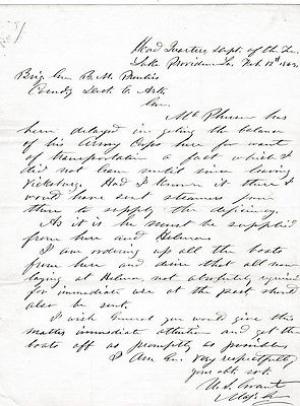 Head Quarters Dept. of the Ten.
Lake Providence La. Feb.
Brig. Gen. B. M. Prentiss
Comdg Dist. E. Ark.
Gen.
McPherson has
been delayed in getting the balance
of his Army Corps here for want
of transportation a fact which I
did not learn until since leaving
Vicksburg. Had I known it there I
would have sent steamers from
there to supply the deficiency.
As it is he must be supplied
from here and Helena
I am ordering up all the boats
from here and desire that all now
laying at Helena, not absolutely required
for immediate use at the post should
also be sent.
I wish General you would give this
matter immediate attention and get the
boats off as promptly as possible.
I Am Gen. very respectfully
your obt. svt.
U. S. Grant
Maj. Gen.